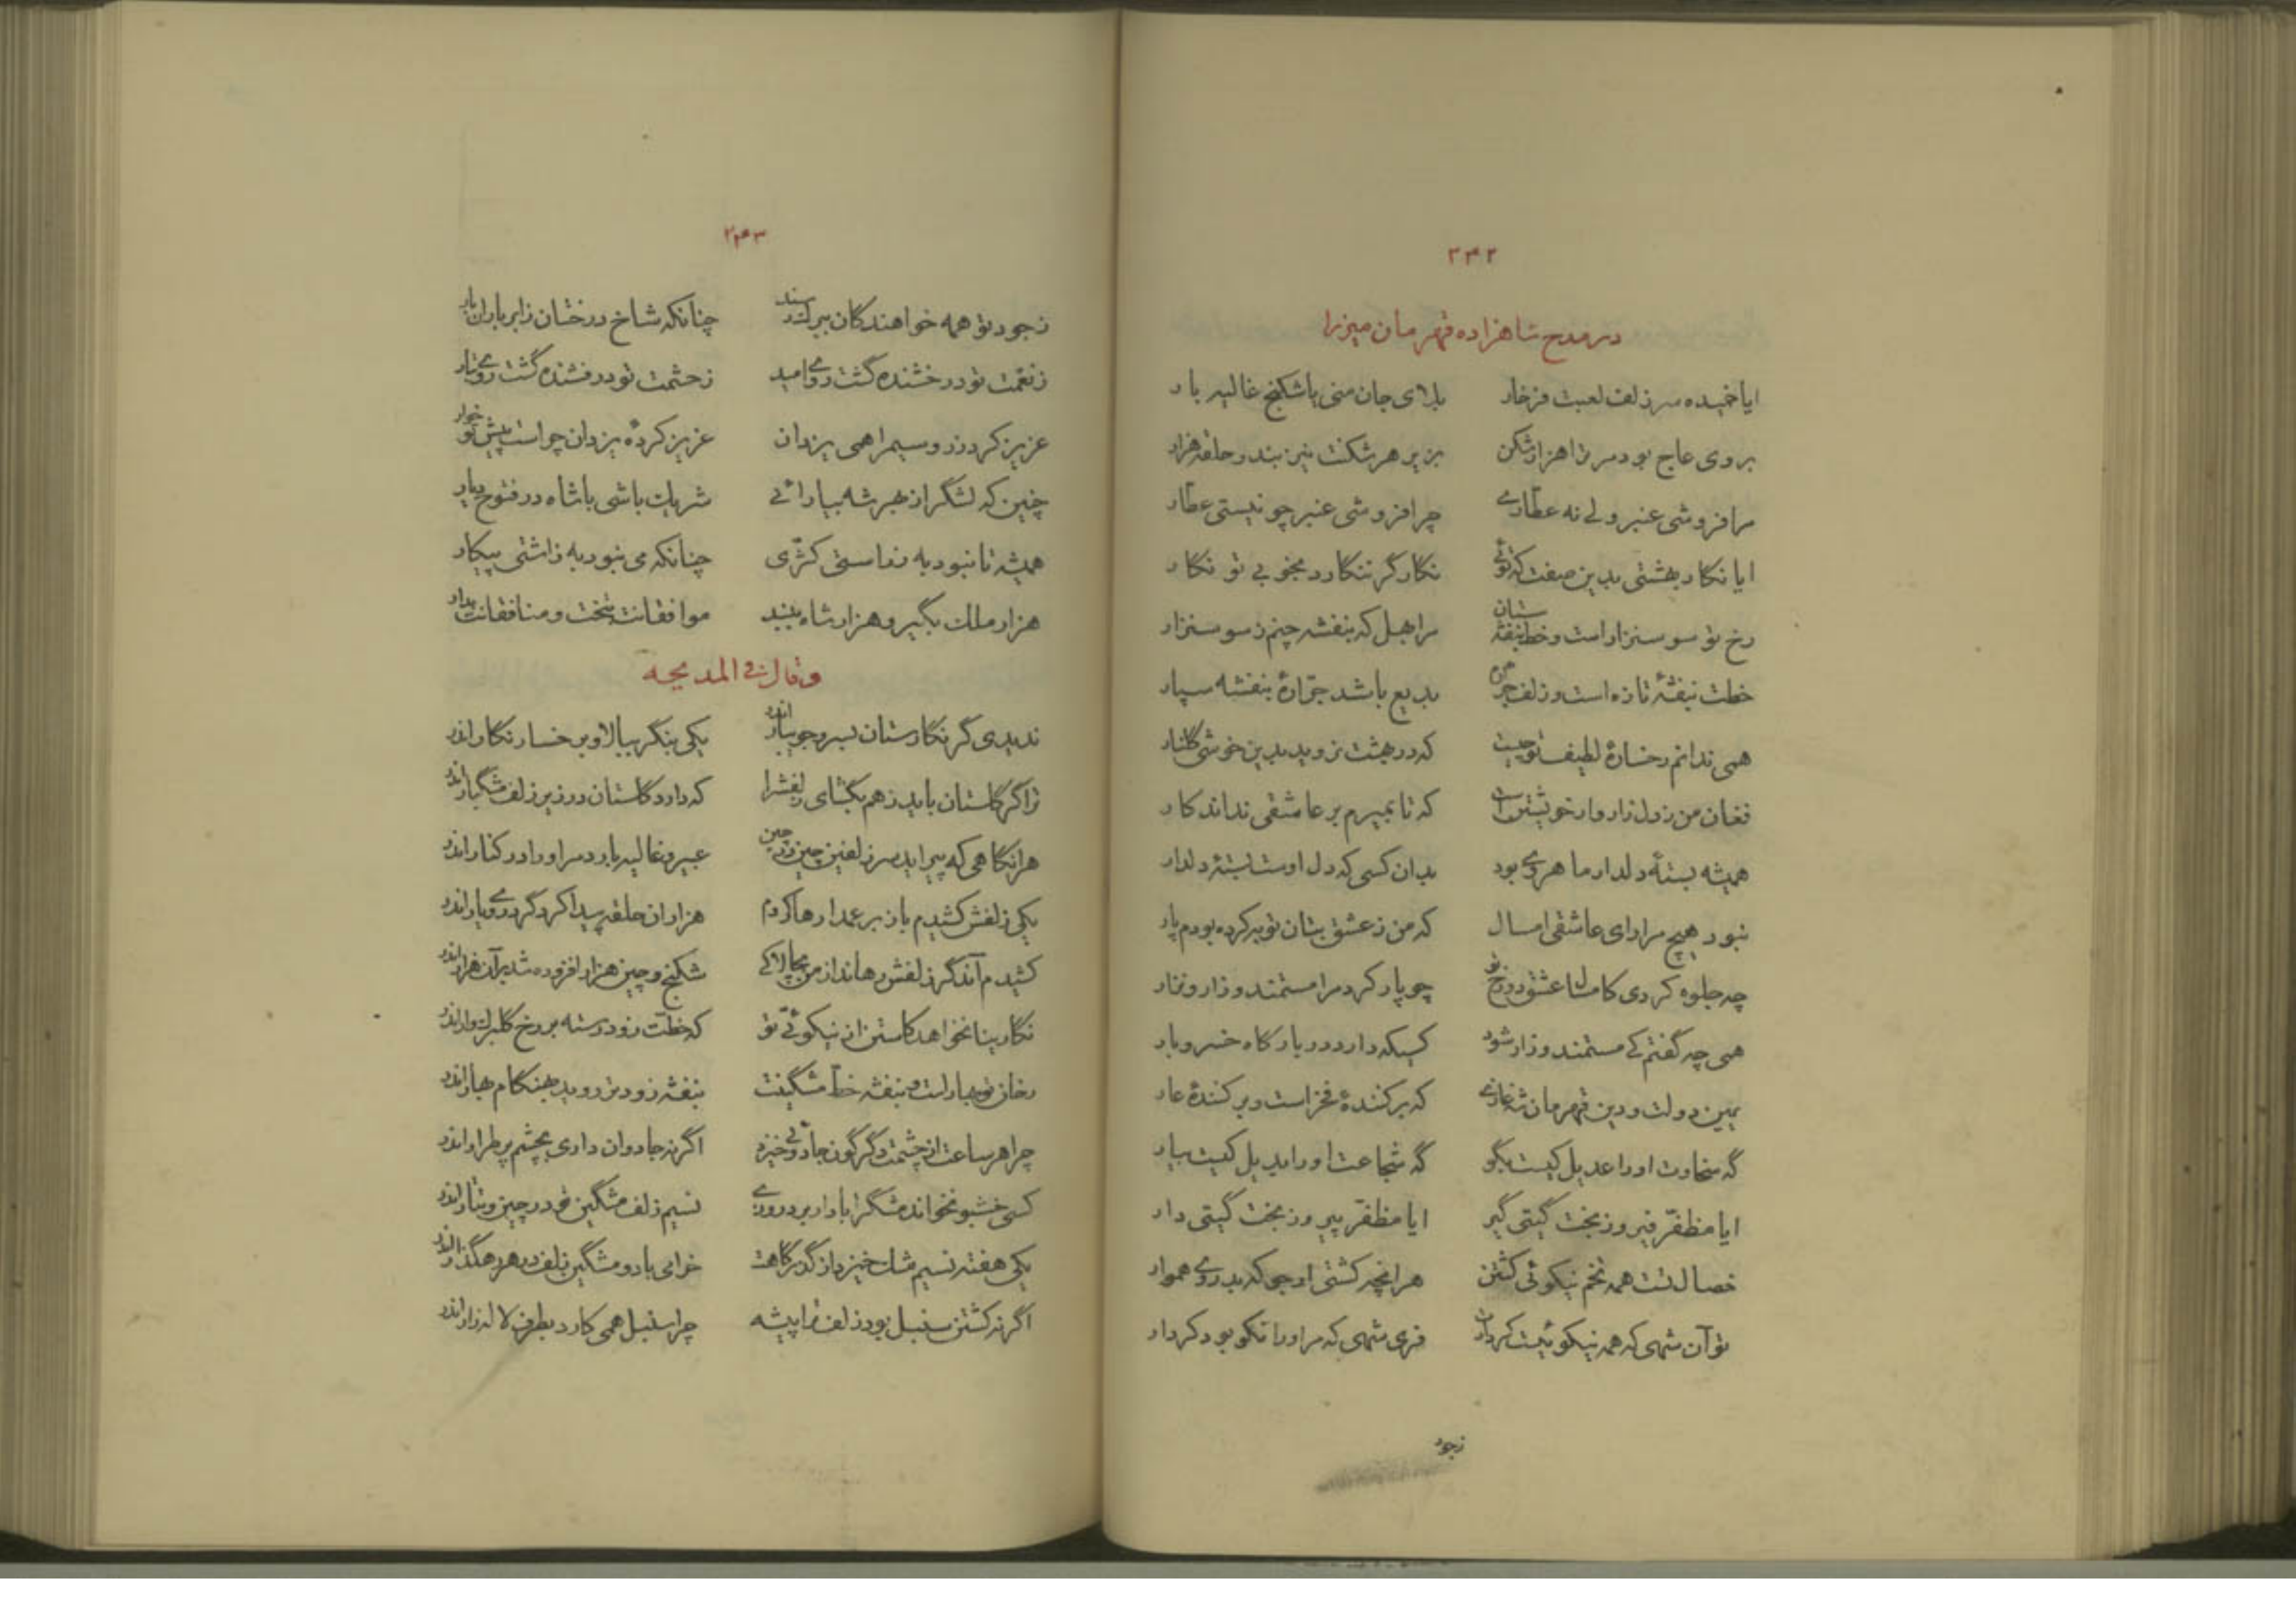 ۲۴۲
در مدح شاهزاده قهرمان میرزا
ایا خمیده سر زلف لعبت فرخار بلای جان منی با شکنج غالیه بار
بروی عاج بود مر ترا هزار شکن بزیر هر شکنت نیز بند و حلقه هزار
مرا فروشی عنبر ولی نه عطاری چرا فروشی عنبر چو نیستی عطار
ایا نگار بهشتی بدین صفت که توئی نگار گر ننگارد بخوبی تو نگار
رخ تو سوسنزار است و خط بنفشه ستان مرا بهل که بنفشه چنم ز سوسنزار
خطت بنفشهٔ تازه است و زلف بدیع باشد جرّارهٔ بنفشه سپار
همی ندانم رخسارهٔ لطیف تو چیست که در بهشت نروید بدین خوشی گلنار
فغان من ز دل زار وار خویشتن است که تا بمیرم بر عاشقی نداند کار
همیشه بستهٔ دلدار ماهروی بود بدان کسی که دل اوست بستهٔ دلدار
نبود هیچ مرا رای عاشقی امسال که من ز عشق بتان توبه کرده بودم پار
چه جلوه کردی کامسال عشق دو رخ تو چو پار کرد مرا مستمند و زار و نزار
همی چه گفتم کی مستمند و زار شود کسیکه دارد در بارگاه خسرو بار
یمین دولت و دین قهرمان شه غازی که بر کنندهٔ فخر است و بر کنندهٔ عار
گه سخاوت او را عدیل کیست بگو گه شجاعت او را بدیل کیست بیار
ایا مظفّر فیروز بخت گیتی گیر ایا مظفّر پیروز بخت گیتی دار
خصال تست همه تخم نیکوئی کشتن هر انچه کشتی از جو که بدروی هموار
تو آن شهی که همه نیکوئیت کردار است فری شهی که مر او را نکو بود کردار
زجود
۲۴۳
زجود تو همه خواهندگان ببر رسند چنانکه شاخ درختان ز ابر باران بار
ز نعمت تو درخشنده گشت روی امید ز حشمت تو درفشنده گشت روی تبار
عزیز کرد زر و سیم را همی یزدان عزیز کردهٔ یزدان چراست پیش تو خوار
چنین که لشگر از بهر شه بیارائی شریک باشی با شاه در فتوح دیار
همیشه تا نبود به ز راستی کژّی چنانکه می نبود به ز اشتی پیکار
هزار ملک بگیر و هزار شاه ببند موافقانت بتخت و منافقانت بدار
و قال فی المدیحه
ندیدی گر نگارستان بسرو جویبار اندر یکی بنگر ببالا و برخسار نگار اندر
ترا گر گلستان باید ز هم بگشای زلفش را که دارد گلستان در زیر زلف مشگبار اندر
هرانگاهی که پیراید سر زلفین چین در چین عبیر و غالیه بارد مر او را در کنار اندر
یکی زلفش کشیدم باز بر عمدا رها کردم هزاران حلقه پیدا کرد گرد روی یار اندر
کشیدم آنگه گر زلفش رها ند از من بچالاکی شکنج و چین هزار افزوده شد بر آن هزار اندر
نگارینا نخواهد کاستن از نیکوئی تو که خطت زود رسته بر رخ گلبرگ وار اندر
رخان تو بهار است و بنفشه خطّ مشگینت بنفشه زودتر روید بهنگام بهار اندر
چرا هر ساعت از چشمت دگرگون جادوئی خیزد اگر نه جادوان داری بچشم پر طرار اندر
کسی خشبو نخواند مشگ را بازار بر درروی نسیم زلف مشگین خود در چین و تتار اندر
یکی هفته نسیم مشک خیزد از گذرگاهت خرامی با دو مشگین زلف در هر رهگذار اندر
اگر نه کشتن سنبل بود زلف ترا پیشه چرا سنبل همی کارد بطرف لاله زار اندر